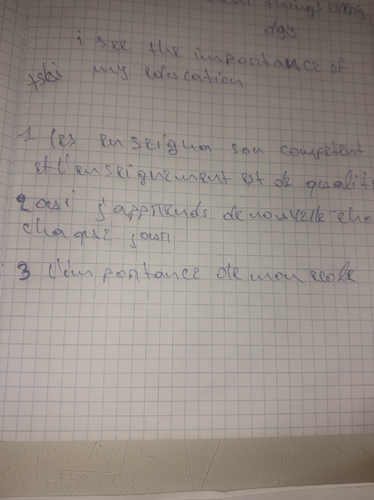 things
day
i see the importance of
my education
1 les enseigna son competent
et l'enseignement est de qualit
2 oui j'apprends de nouvelle cho
chaque jour
3 l'importance de mon ecole